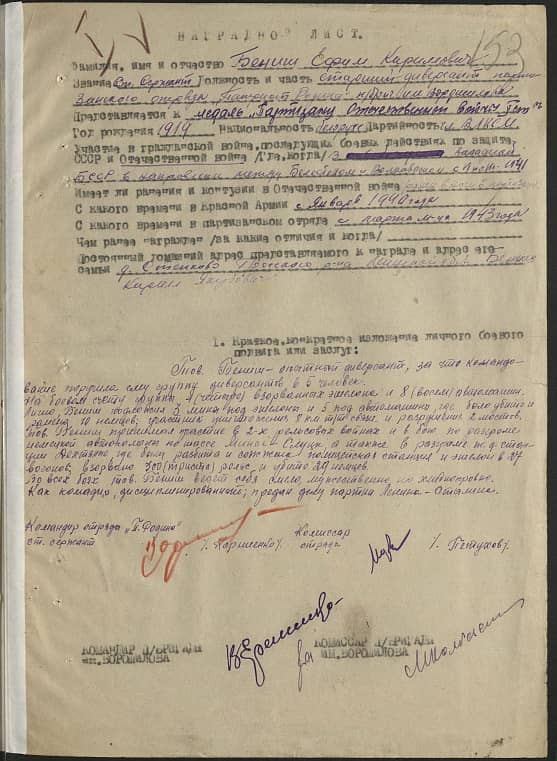 153
НАГРАДНОЙ ЛИСТ.
Фамилия, имя и отчество Бениш Ефим Кириллович
Звание Ст. Сержант Должность и часть старший диверсант парти-
занского отряда "Патриот Родины" п/бригады им Ворошилова
Представляется к медаль "Партизану Отечественной войны" I ст
Год рождения 1919 Национальность белорус Партийность чл. ВЛКСМ
Участие в гражданской войне, последующих боевых действиях по защите
СССР и Отечественной войне /где, когда/ Западной
БССР в направлении между с июн. 1941
Имеет ли ранения и контузии в Отечественной войне
С какого времени в Красной Армии с Января 1940 года
С какого времени в партизанском отряде с марта м-ца 1943 года
Чем ранее награжден /за какие отличия и когда/
Постоянный домашний адрес представляемого к награде и адрес его
семьи д. р-на
Кирилл
1. Краткое, конкретное изложение личного боевого
подвига или заслуг:
Тов. Бениш - опытный диверсант, за что командо-
вание поручило ему группу диверсантов в 6 человек.
На боевом счету группы 4 (четыре) взорванных эшелона и 8 (восем) автомашин.
Лично, Бениш подложил 3 мины под эшелоны и 5 под автомашины, где было убито и
ранено 10 немцев; участник уничтожения 8 км тт связи, и разрушил 2 мостов.
Тов. Бениш принимал участие в 2-х рельсовых войнах и в бою по разгроме
немецкой автоколоны по шоссе Минск Слуцк, а также в разгроме ж.д. стан-
ции где была разбита и сожжена станция и эшелон в 27
вагонов; взорвано 300 (триста) рельс, и убито 20 немцев.
Во всех боях тов. Бениш ведет себя смело, мужественно, но хладнокровно.
Как командир, дисциплинированный; предан делу партии Ленина-Сталина.
Командир отряда "П. Родины"
ст. сержант
Комиссар
отряда
/. Карпиенко/.
/. Петухов/.
КОМАНДИР П/БРИГАДЫ
им. ВОРОШИЛОВА
КОМИССАР П/БРИГАДЫ
ИМ. ВОРОШИЛОВА
за